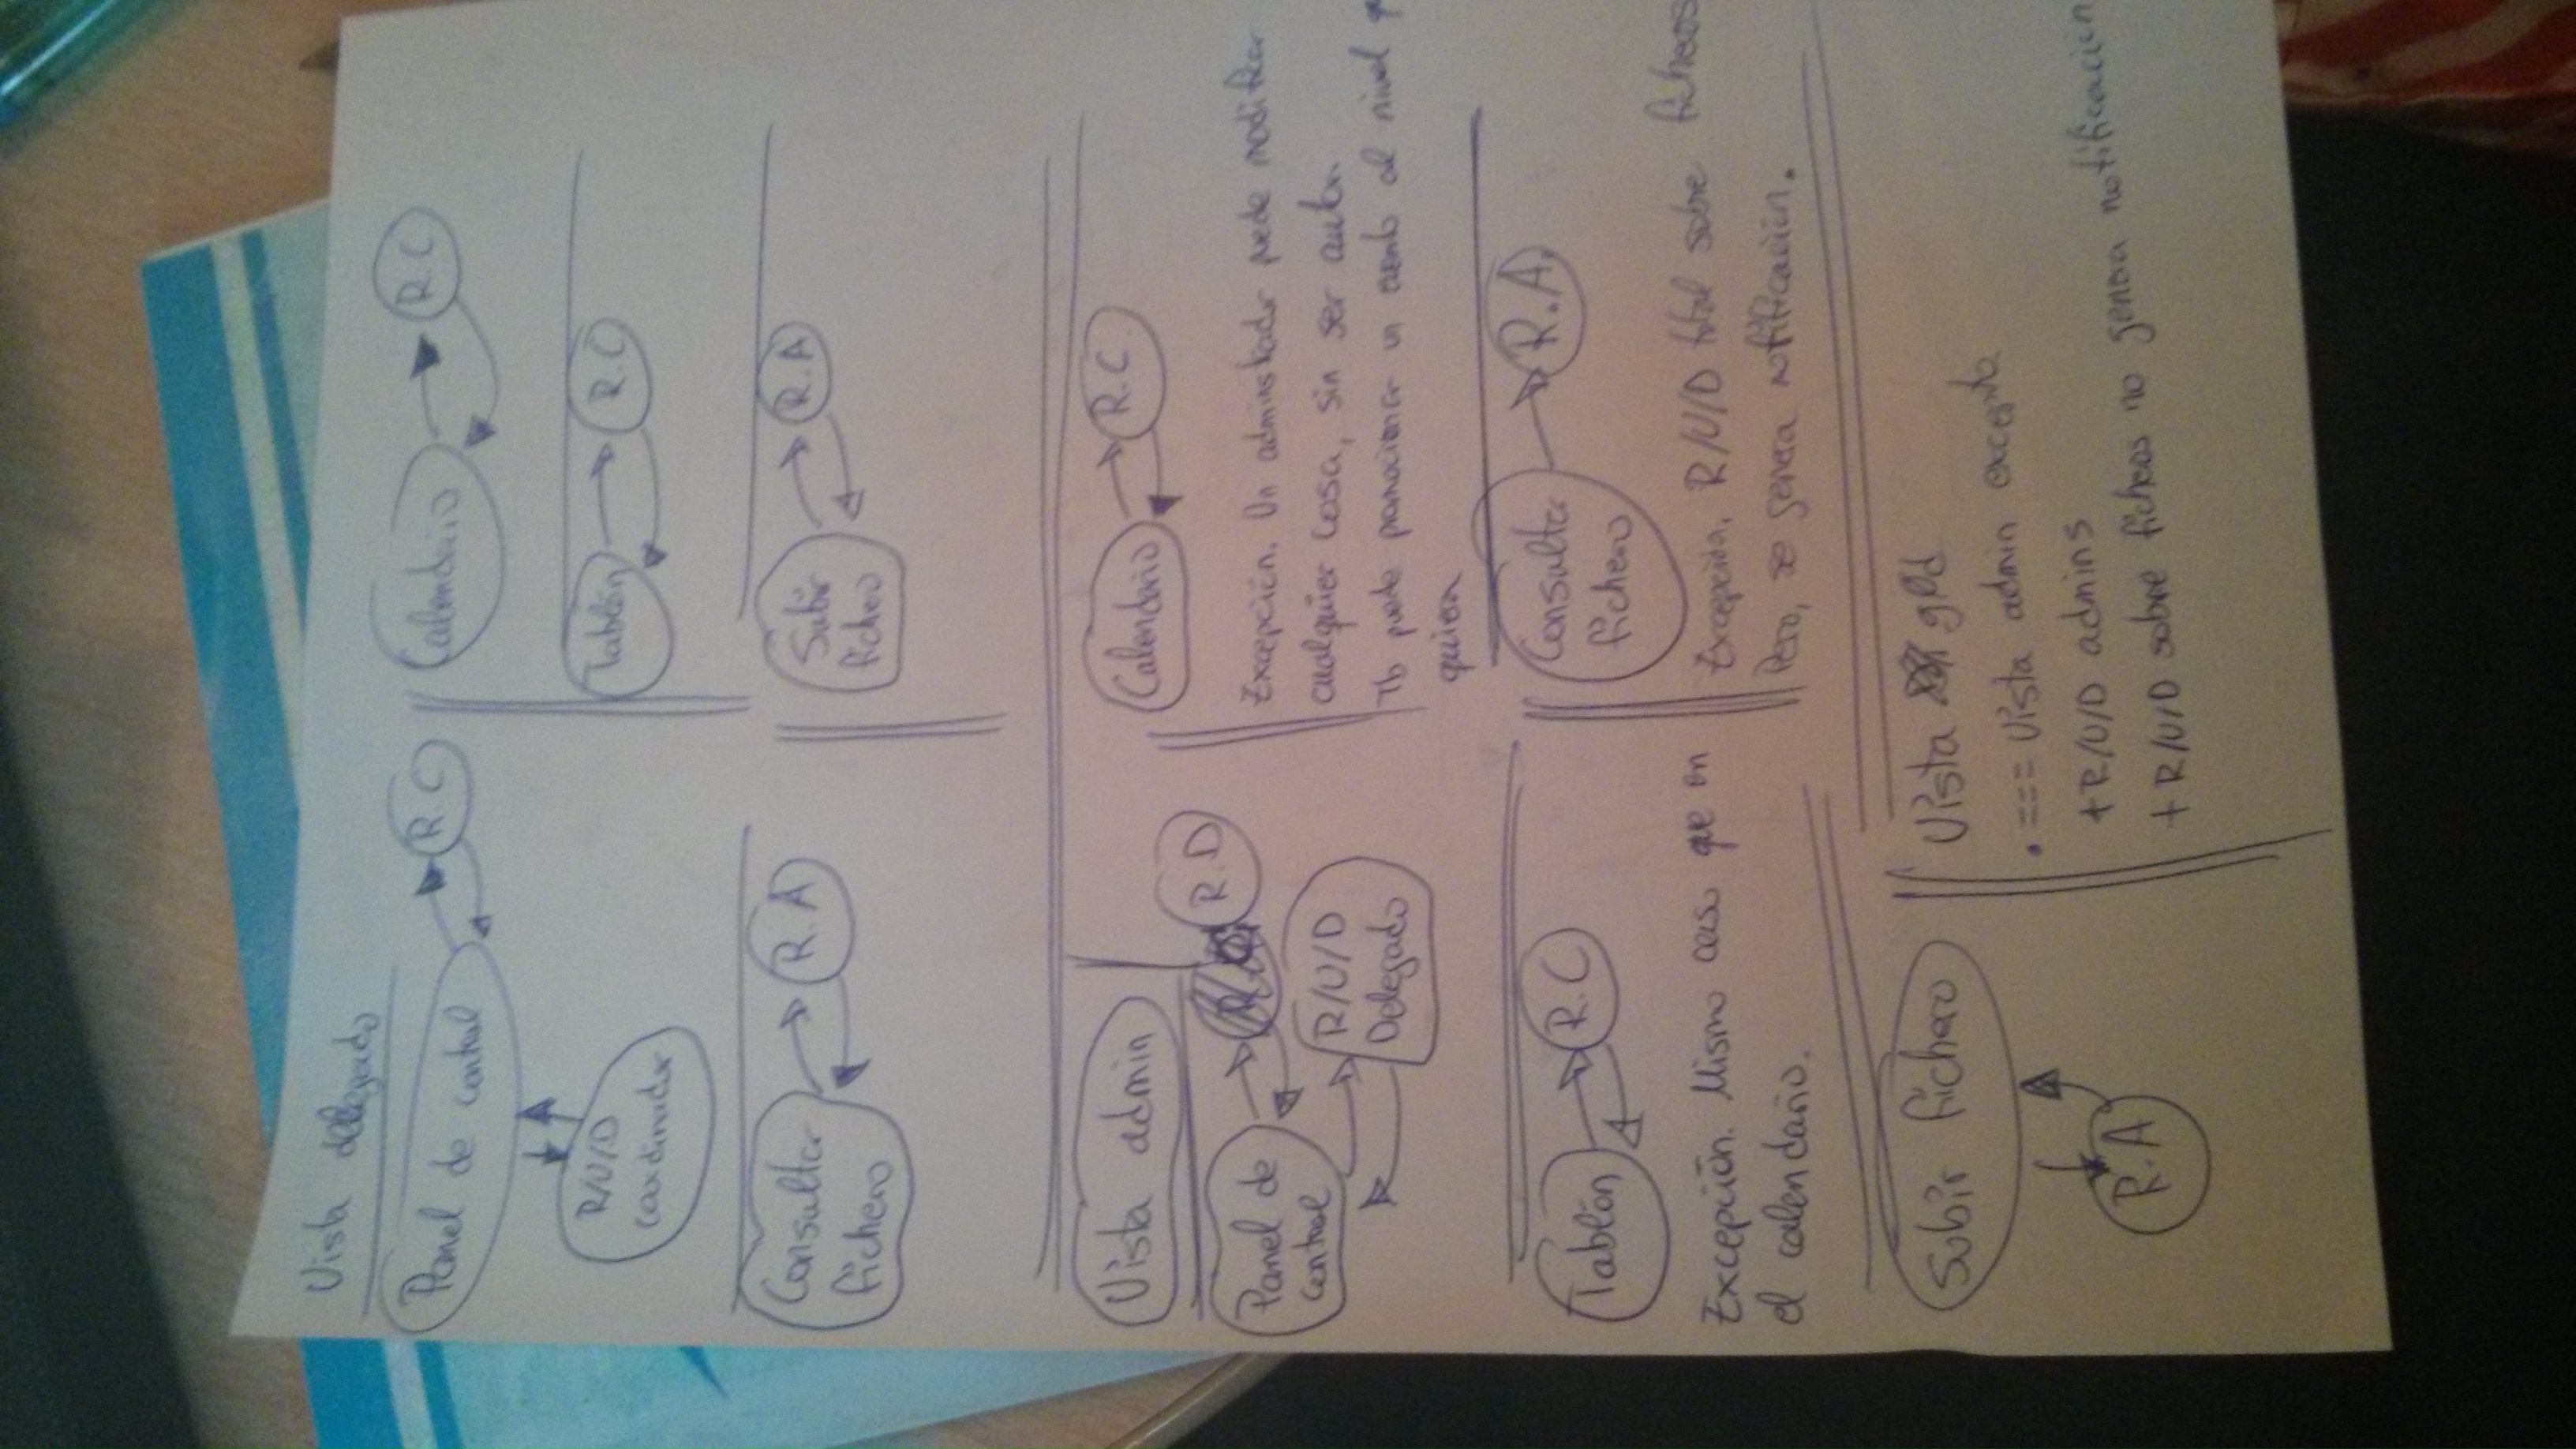 Vista delegado
Panel de control
R.C
R/U/D
coordinador
Calendario
R.C
Tablón
R.C
Consultar
fichero
R.A
Subir
fichero
R.A
Vista admin
Panel de
control
R.D
R/U/D
Delegado
Calendario
R.C.
Excepción. Un administrador puede modificar
cualquier cosa, sin ser autor.
Tb puede promocionar un evento al nivel
quiera
Tablón
R.C
Excepción. Mismo caso que en
el calendario.
Consultar
fichero
R.A.
Excepción. R/U/D total sobre ficheros
Pero, se genera notificación.
Subir fichero
R.A
Vista
. === Vista admin excepto
+ R/U/D admins
+ R/U/D sobre ficheros no genera notificación